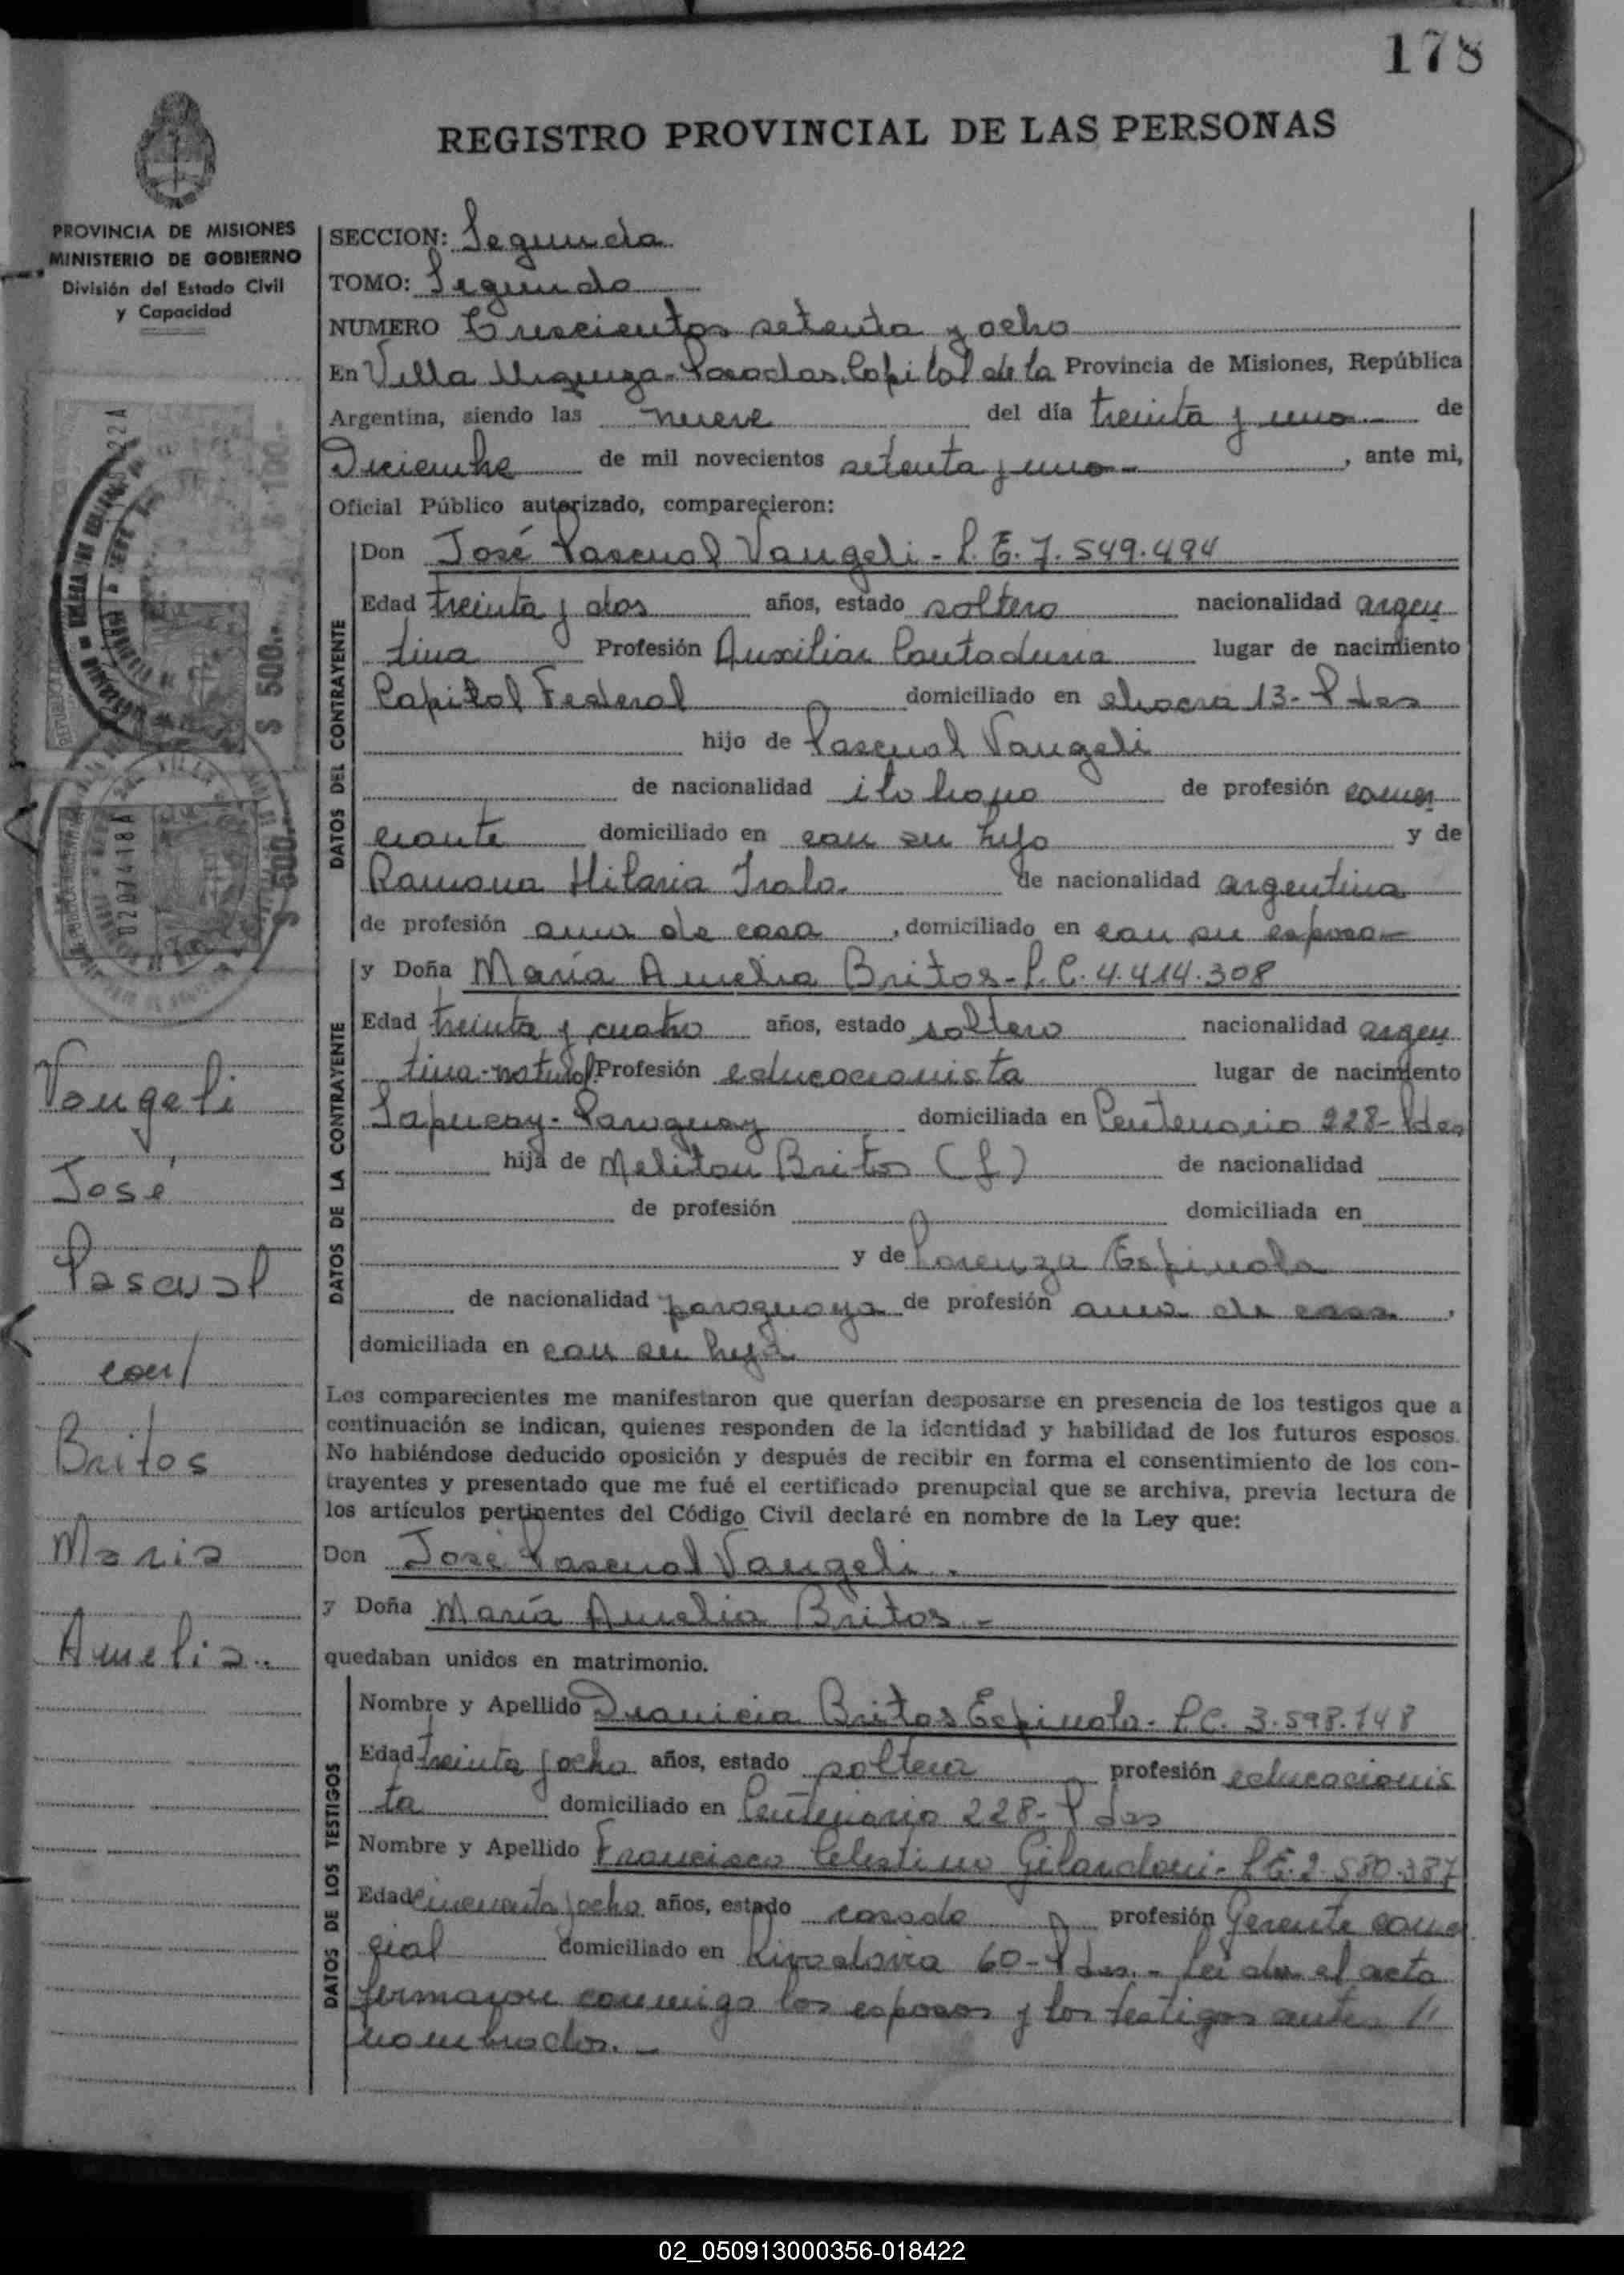 178
REGISTRO PROVINCIAL DE LAS PERSONAS
PROVINCIA DE MISIONES
MINISTERIO DE GOBIERNO
División del Estado Civil
y Capacidad
$ 100.-
$ 500.-
$ 500
0207418A
Vangeli
José
Pascual
con/
Britos
María
Amelia..
SECCION: Segunda
TOMO: Segundo
NUMERO Trescientos setenta y ocho
En Villa Urquiza - Posadas, Capital de la Provincia de Misiones, República
Argentina, siendo las nueve del día treinta y uno - de
Diciembre de mil novecientos setenta y uno - , ante mi,
Oficial Público autorizado, comparecieron:
DATOS DEL CONTRAYENTE
Don José Pascual Vangeli - L.E. 7.549.494
Edad treinta y dos años, estado soltero nacionalidad argen
tina Profesión Auxiliar Contaduria lugar de nacimiento
Capital Federal domiciliado en chacra 13 - Pdas
hijo de Pascual Vangeli
de nacionalidad italiano de profesión comer
ciante domiciliado en con su hijo y de
Ramona Hilaria Irala. de nacionalidad argentina
de profesión ama de casa , domiciliado en con su esposo -
DATOS DE LA CONTRAYENTE
y Doña María Amelia Britos - L.C. 4.414.308
Edad treinta y cuatro años, estado soltera nacionalidad argen
tina - natural. Profesión educacionista lugar de nacimiento
Sapucay - Paraguay domiciliada en Centenario 228 - Pdas
hija de Meliton Britos (f) de nacionalidad
de profesión domiciliada en
y de Lorenza Espinola
de nacionalidad paraguaya de profesión ama de casa ,
domiciliada en con su hija
Los comparecientes me manifestaron que querían desposarse en presencia de los testigos que a
continuación se indican, quienes responden de la identidad y habilidad de los futuros esposos.
No habiéndose deducido oposición y después de recibir en forma el consentimiento de los con-
trayentes y presentado que me fué el certificado prenupcial que se archiva, previa lectura de
los artículos pertinentes del Código Civil declaré en nombre de la Ley que:
Don José Pascual Vangeli.
y Doña María Amelia Britos -
quedaban unidos en matrimonio.
DATOS DE LOS TESTIGOS
Nombre y Apellido Dionicia Britos Espinola - L.C. 3.598.148
Edad treinta y ocho años, estado soltera profesión educacionis
ta domiciliado en Centenario 228 - Pdas
Nombre y Apellido Francisco Celestino Gilardoni - L.E. 2.580.387
Edad cincuenta y ocho años, estado casado profesión Gerente comer
cial domiciliado en Rivadavia 60 - Pdas. - Leída el acta
firmaron conmigo los esposos y los testigos ante //
nombrados. -
02_050913000356-018422